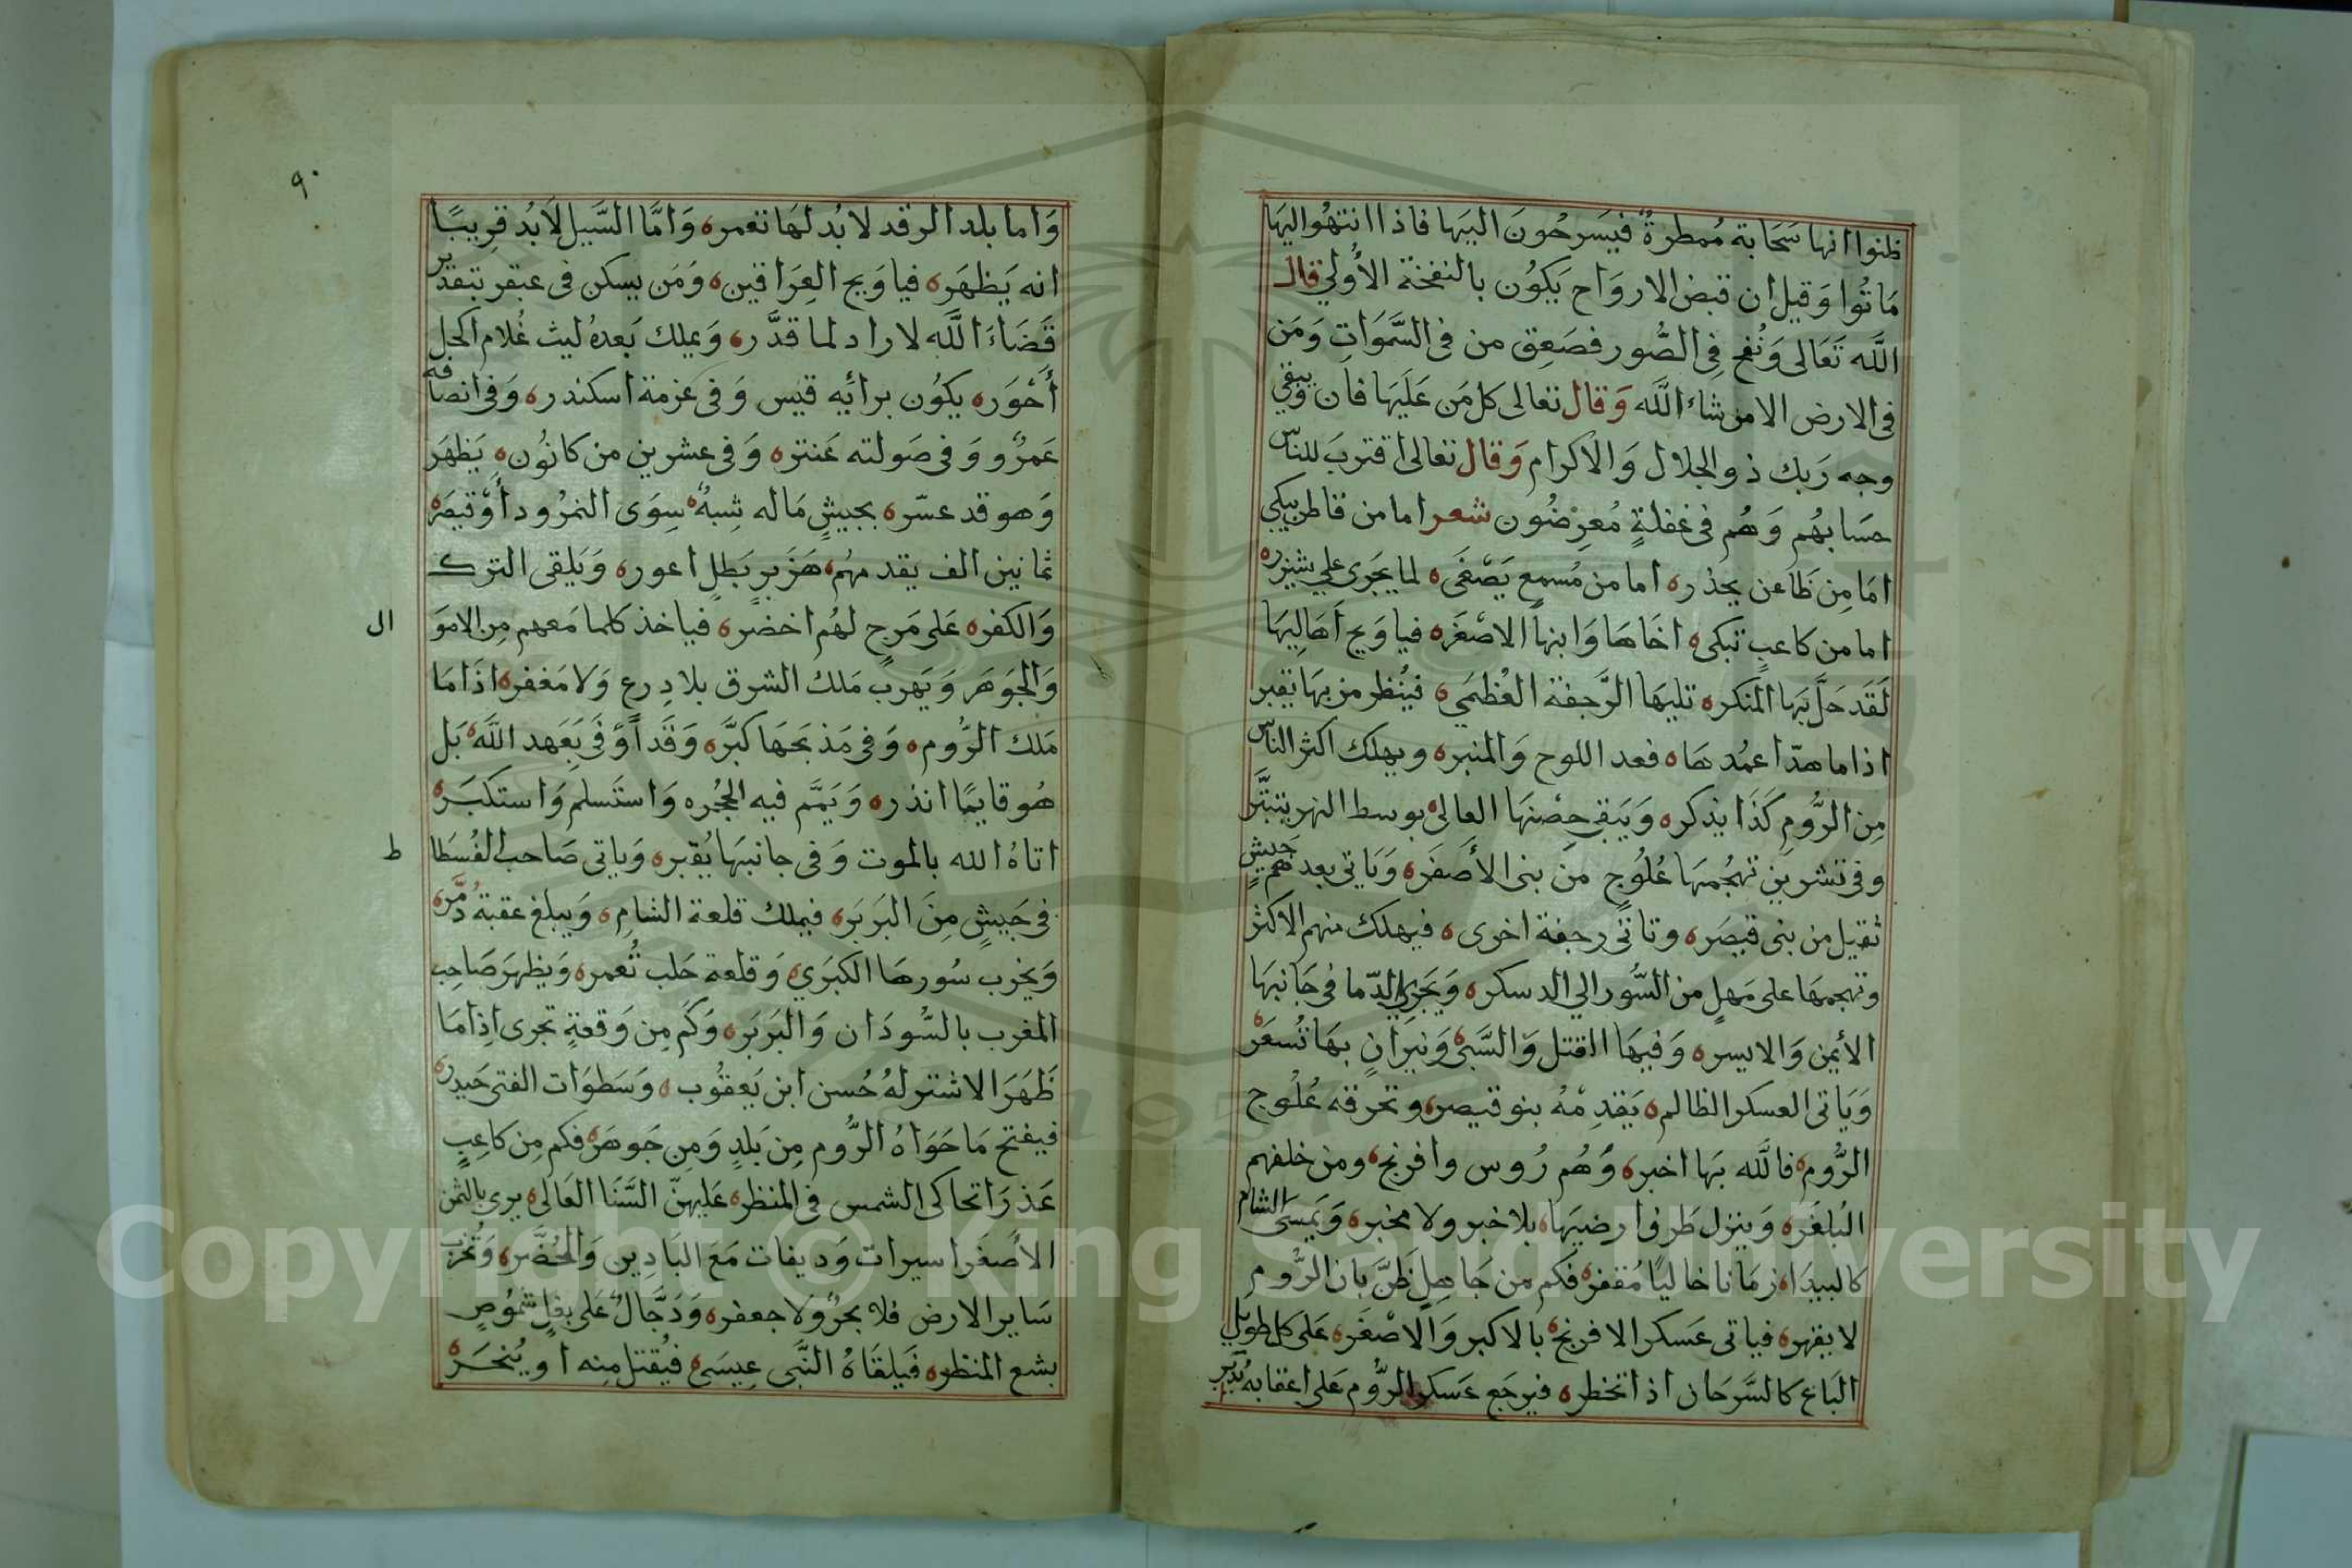 ظنوا انها سَحَابة مُمطرةٌ فيَسرحُونَ اليَها فاذا انتهُوا اليهَا
مَاتُوا وَقيل ان قبض الاروَاح يَكوُن بالنفخة الأُولي قال
اللَّه تَعَالى وَنُفخ فِى الصُّور فصَعِق من فى السَّمَوَاتِ وَمَن
فى الارض الا من شاءَ اللَّه وَقال تعالى كل مَن عَلَيهَا فان وَيبقي
وجه رَبك ذو الجلال وَالاكرام وَقال تعالى اقتربَ للناس
حسَابهُم وَهُم فى غفلةٍ مُعرِضُون شعر اما من قاطن يبكي
امَا مِن ظَاعن يحذره اما من مُسمعٍ يَصْغَىه لما يَجَرى علي شيزره
اما من كاعبٍ تبكىه اخَاهَا وَابنها الاصْغَره فياوَيح اَهَاليهَا
لَقَد حَلَّ بهَا المنكره تليهَا الرَّجفة العُظمَيه فيُنظر من بهَا يقبر
اذا ما هدّا عمُدهَاه فعد اللوح وَالمنبره ويهلك اكثر الناس
مِن الرُّومِ كَذَا يذكره وَيَبقى حِصْنهَا العالىه بوسط النهر يتبتَّر
وفى تشرين تهجُمهَا عُلُوجٍ من بنى الأَصفَره وَيَاتى بعدهم جَيشٍ
ثقيل من بنى قيصَره وتاتى رجفة اخرىه فيهلك منهم الاكثر
وتهجمهَا على مَهلٍ من السُّور الي الدسكره وَيَجَرِي الدّما فى جَانبهَا
الأيمن وَالايسره وَفيهَا القتل وَالسَّبىه وَنيرَانٍ بهَا تُسعَرْه
وَيَاتى العسكر الظالمه يَقدِمْهُ بنو قيصره وتخرقه عُلُوج
الرُّومه فاللَّه بهَا اخبره وَهُم رُوس وافرنجه ومن خلفهم
البُلغَره وَينزل طَرفا رضيهَاه بلا خبر ولا مخبره وَيمسَى الشام
كالبيدَاه زمَانا خاليًا مُقفره فكم من جَاهلٍ ظَنَّ بان الرُّوم
لا يقهره فياتى عَسكر الافرنجه بالاكبر وَالاصْغَره عَلى كل طويل
البَاع كالسَّرحَان اذا تخطره فيرجَع عَسكر الرُّوم عَلى اعقابه يُدبر
٩٠
وَاما بلد الرقد لابُد لهَا تعمره وَامَّا السَّبيل لَابُد قريبًا
انه يَظهَره فياوَيح العِرَاقينه وَمَن يسكن فى عبقر بتقدير
قَضَاءَ اللَّه لاراد لما قدَّره وَيملك بَعدهُ ليث غُلام الحل
أحْوَره يكوُن برائَيه قيس وَفى عزمة اسكندره وَفى انصافه
عَمرٌو وَفى صَولته عَنتره وَفى عشرين من كانُونه يَظهَر
وَهو قد عسّره بجيشٍ مَاله شِبهُه سِوَى النمرُود أوْ قيصَره
ثمانين الف يقدمهُمه هَزَبرٍ بَطلٍ اعوره وَيَلقى الترك
وَالكفره عَلى مَرجٍ لهُم اخضره فياخذ كلما مَعهم مِن الاموَ
ال
وَالجوَهَر وَيَهرب مَلك الشرق بلا دِرعٍ وَلا مَغفره اذَا مَا
مَلك الرُّومه وَفى مَذبحَهَا كبَّره وَقَد اَوْفَى بِعَهد اللَّه بَل
هُو قايمًا انذره وَيَمَّم فيه الحجُره وَاستَسلم وَاستكبَره
اتاهُ الله بالموت وَفى جانبهَا يُقبره وَياتى صَاحب الفُسطَا
ط
فى جَيشٍ مِنَ البَربَره فيملك قلعة الشامِه وَيبلغ عقبة دُمَّره
وَيخرب سُورهَا الكبَرَيه وَقلعة حَلب تُعمره وَيظهَر صَاحب
المغرب بالسُّودَان وَالبَربَره وَكَم مِن وَقعةٍ تجرى اِذا مَا
ظَهَرَ الاشتر لهُ حُسن ابن يَعقُوبه وَسَطوَات الفتى حَيدره
فيفتح مَا حَوَاهُ الرُّوم مِن بَلدٍ وَمِن جَوهَره فكم مِن كاعِبٍ
عَذرَا تحاكى الشمس فى المنظره عَليهنّ السَّنَا العَالىه يرى بالثمن
الأَصغَر اسيرات وَديفات مَعَ البَادِين وَالحُضَّره وَتُخرَب
سَاير الارض فلا بحرٌ ولا جعفره وَدَجَّالٌ عَلى بغلٍ شمُوصٍ
بشع المنظره فَيلقَاهُ النَّبى عِيسَىه فيُقتل مِنه او يُنحَره
Copyright © King Saud University
1957